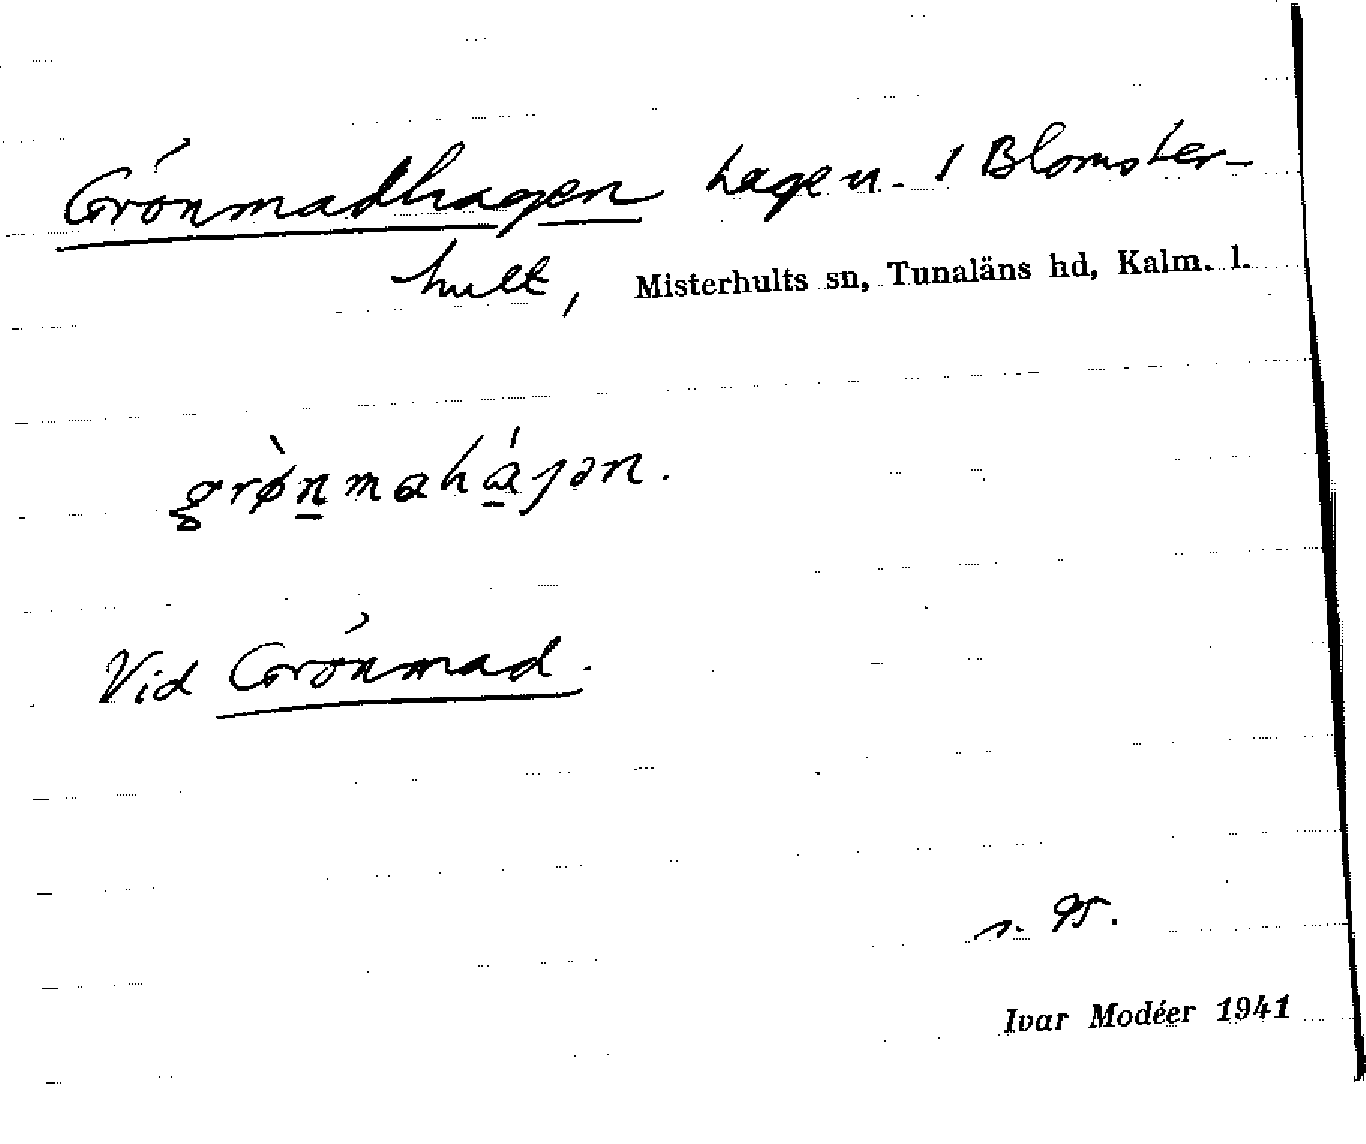 Grönmadhagen hage n. I Blomster-
hult, Misterhults sn, Tunaläns hd, Kalm. l.
grø̀nmahágən.
Vid Grönmad.
s. 95.
Ivar Modéer 1941